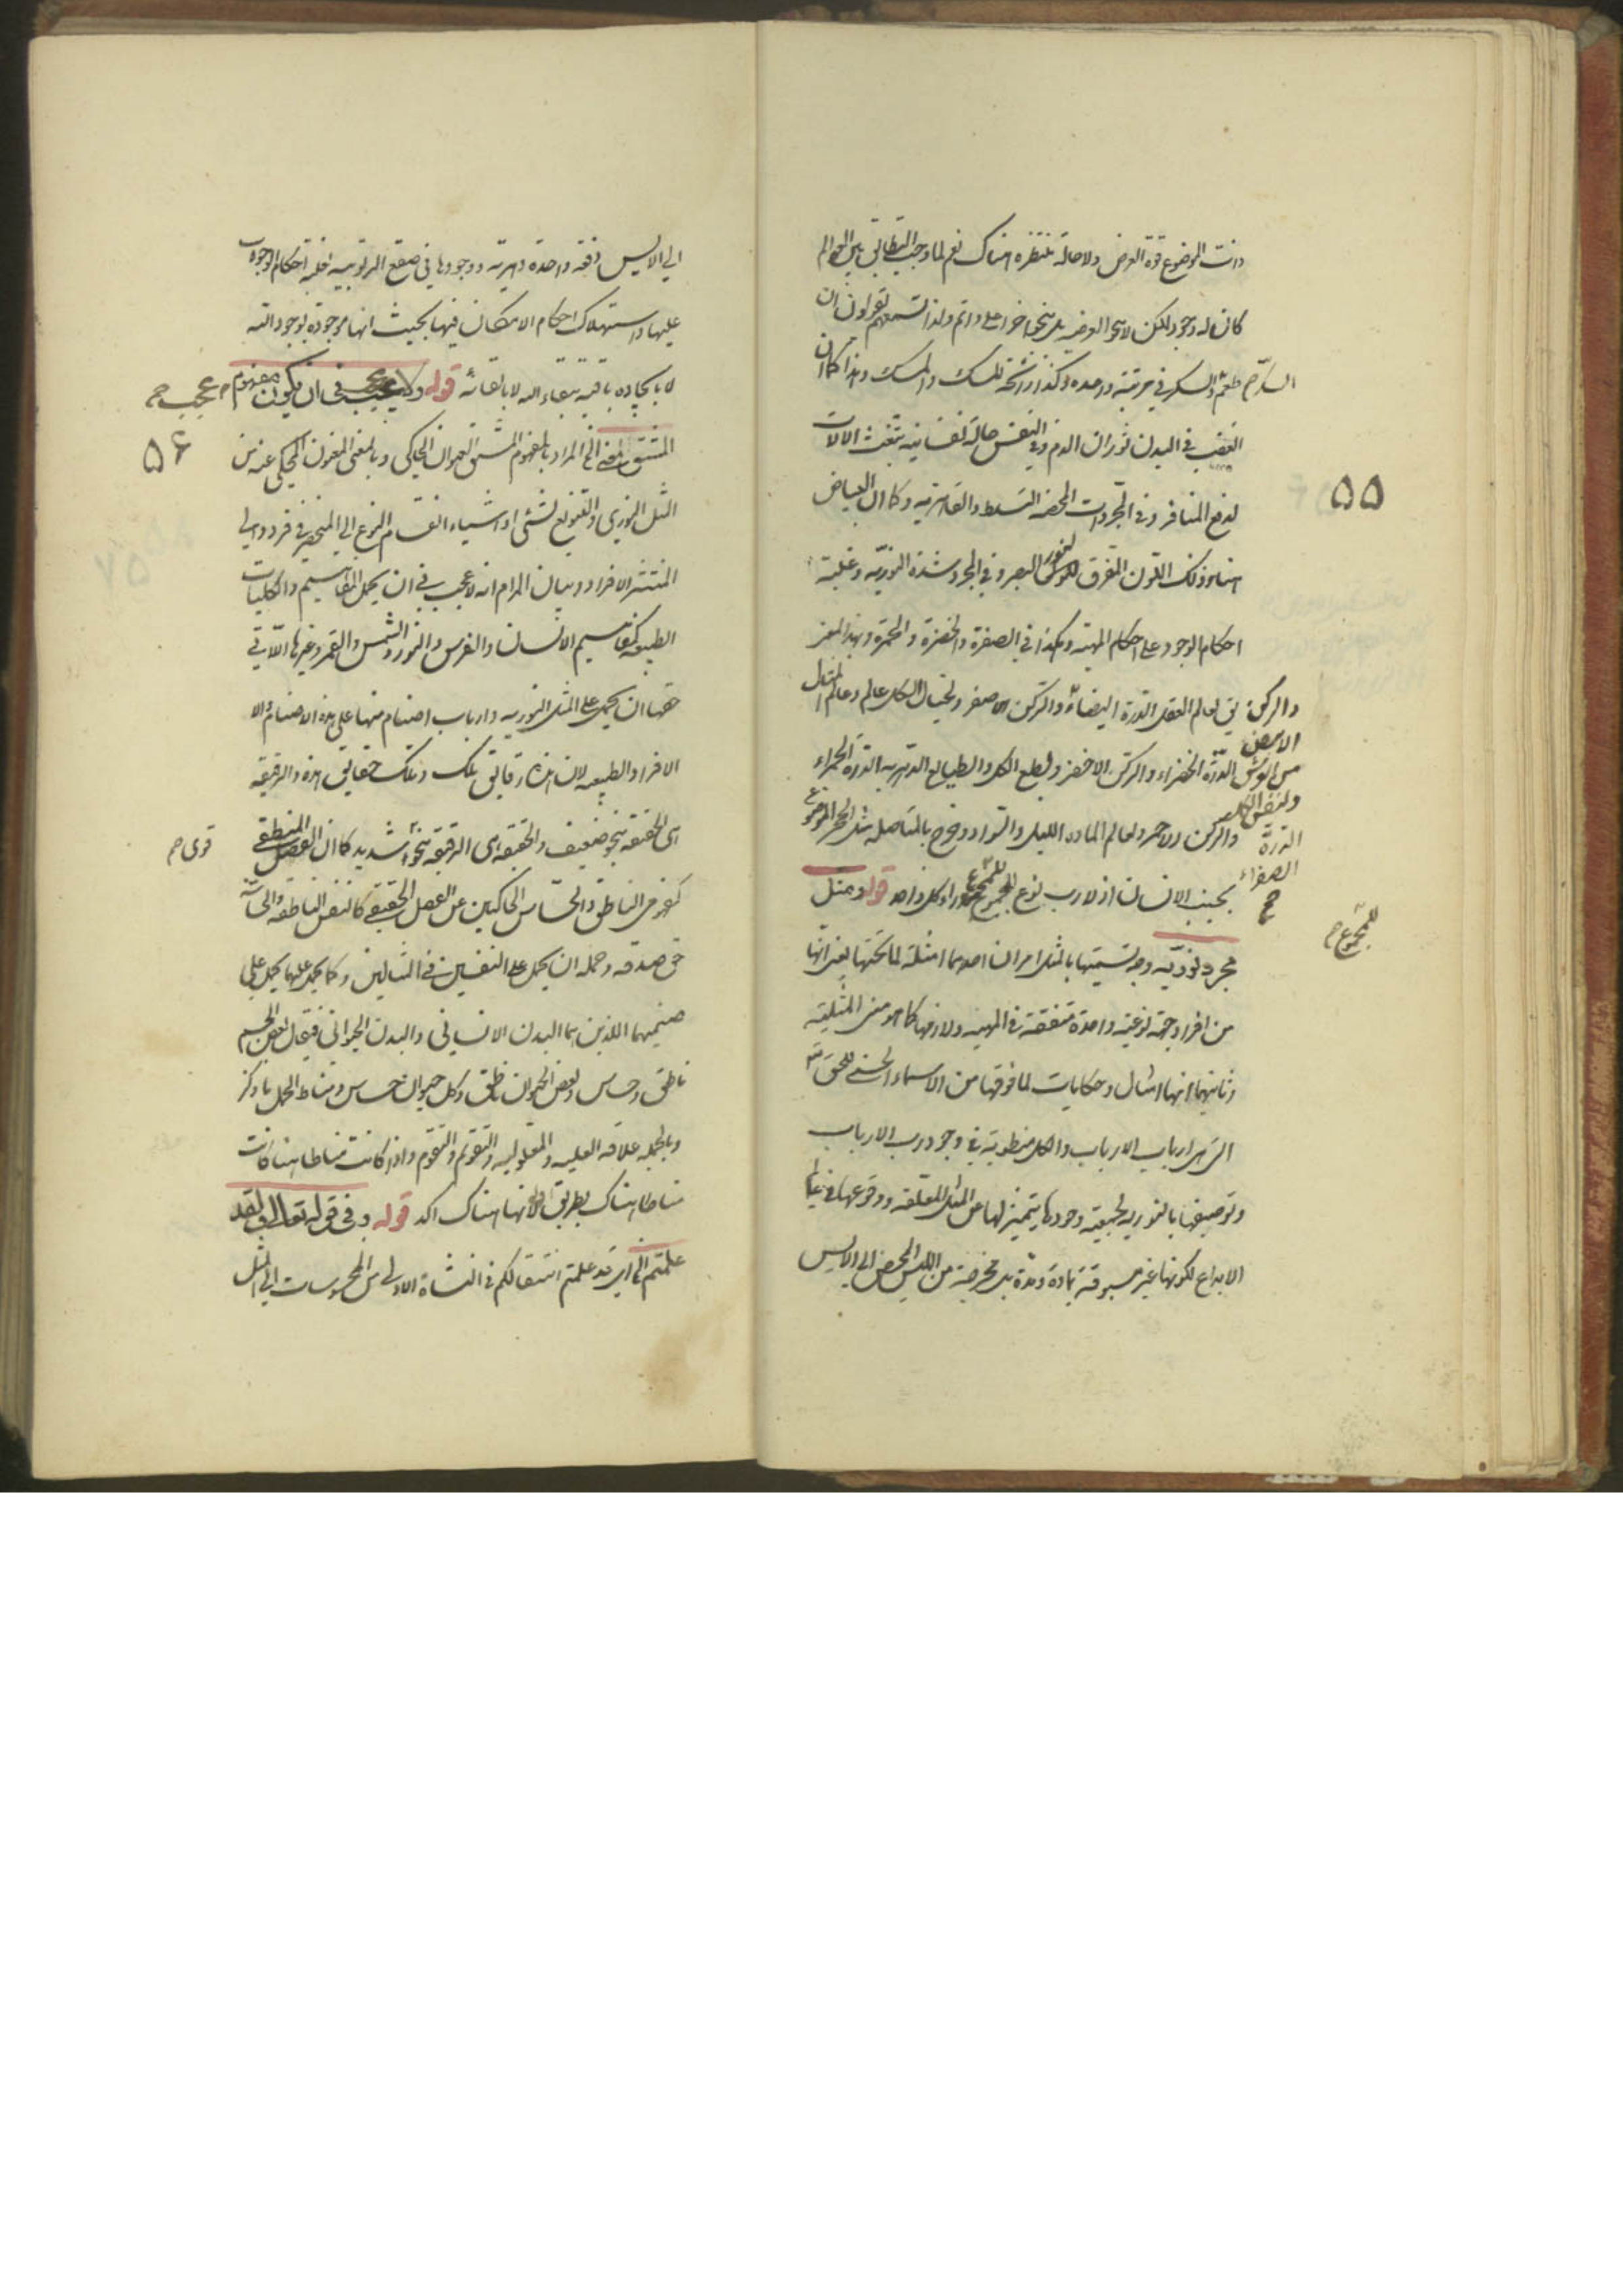 وانت الموضوع قوة العرض ولا حالة منتظره هناك نعم لما وجب التطابق بين العوالم
كان له وجود لكن لا بنحو العرضيه بل بنحو اخر اعلى واتم ولذا تسمعهم يقولون ان
السكر طعم السكر في مرتبته واحده وكذا رائحة المسك والمسك وهذا كما ان
الغضب في البدن ثوران الدم وفي النفس حالة نفسانيه تبعث الالات
لدفع المنافر وفي المجردات المحضه التسلط والقاهريه وكما ان البياض
هنا هو ذلك اللون المفرق لنور البصر وفي المجرد شدة النوريه وغلبة
احكام الوجود على احكام المهيه وهكذا في الصفرة والخضرة والحمرة وبهذا المعنى
يق لعالم العقل الدرة البيضاء والركن الابيض ولخيال الكل عالم وعالم المثال
الدرة الخضراء والركن الاخضر ولطبع الكل والطبايع الدهريه الدرة الحمراء
والركن الاحمر ولعالم الماده الليل والسواد وخرج بالمتاصله مثل الحجر الموضوع
والركن
الابيض
من العرش
ولنفس الكليه
الدرة
الصفراء
صح
بجنب الانسان اذ لا رب نوع للمجموع وراء كل واحد قوله ومثل
للمجموع
مجردة نوريه وجه تسميتها بالمثل امران احدهما امثلة لما تحتها يعنى انها
من افراد وجهة نوعيته واحدة متفقة في المهيه ولازمها كما هو معنى المثليه
وثانيهما انها امثال وحكايات لما فوقها من الاسماء الحسنى للحق تعالى
التي هى ارباب الارباب والكل منطوية في وجود رب الارباب
وتوصيفها بالنوريه لجمعية وجودها يتميز لها عن المثل المعلقه ووقوعها في عالم
الابداع لكونها غير مسبوقة بمادة ومدة بل مخرجة من الليس المحض الى الايس
٥٥
الى الايس دفعة واحدة دهرية ووجودها في صقع الربوبيه لغلبة احكام الوجوب
عليها واستهلاك احكام الامكان فيها بحيث انها موجودة بوجود الله
لا بايجاده باقيه ببقاء الله لا بابقائه قوله ولا عجب في ان يكون مفهوم
عجب صح
المشتق الخ المراد بالمفهوم المشتق العنوان الحاكي وبالمعنى المعنون المحكي عنه من
٥٦
المثل النوري والتنويع لشئ او اشياء انقسام النوع الى المنحصر في فرد والى
المنتشر الافراد وبيان المرام انه لا عجب في ان يحمل المفاهيم والكليات
الطبيعيه كمفاهيم الانسان والفرس والنور والشمس والقمر وغيرها اللاتي
حقها ان يحمل على المثل النوريه وارباب اصنام منها على هذه الاصنام والا
الافراد الطبيعيه لان هذه رقايق تلك وتلك حقايق هذه والرقيقه
هى الحقيقه بنحو ضعيف والحقيقه هى الرقيقه بنحو شديد كما ان الفصل المنطقى
قوى صح
كمفهومى الناطق والحساس الحاكيين عن الفصل الحقيقى كالنفس الناطقه والحساسه
حق صدقه وحمله ان يحمل على النفسين في المثالين وكما يحمل عليهما يحمل على
صنميهما اللذين هما البدن الانسانى والبدن الحيوانى فيقال بعض الجسم
ناطق وحساس وبعض الحيوان ناطق وكل حيوان حساس ومناط الحمل ما ذكر
وبالجمله علاقة العليه والمعلوليه والتقويم والتقوم واذا كانت مناطا هنا كانت
مناطا هناك بطريق اولى لانها هناك اكد قوله وفى قوله تعالى ولقد
علمتم الخ اى قد علمتم انتقالكم في النشاة الاولى من المحسوسات الى المثل